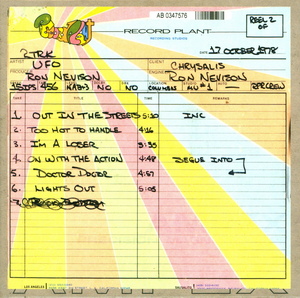 AB 0347576
REEL 2
OF
RECORD PLANT
RECORDING STUDIOS
DATE 17 OCTOBER 1978
2TRK
ARTIST UFO CLIENT CHRYSALIS
PRODUCER RON NEVISON ENGINEER RON NEVISON
15 IPS 456 NO NO MU #1 — RPRCREW
TITLE REMARKS
1 OUT IN THE STREETS 5:20 INC
2. TOO HOT TO HANDLE 4:16
3. I'M A LOSER 3:55
4. ON WITH THE ACTION 4:48 SEGUE INTO
5. DOCTOR DOCTOR 4:57
6. LIGHTS OUT 5:03
7.
LOS ANGELES SAUSALITO